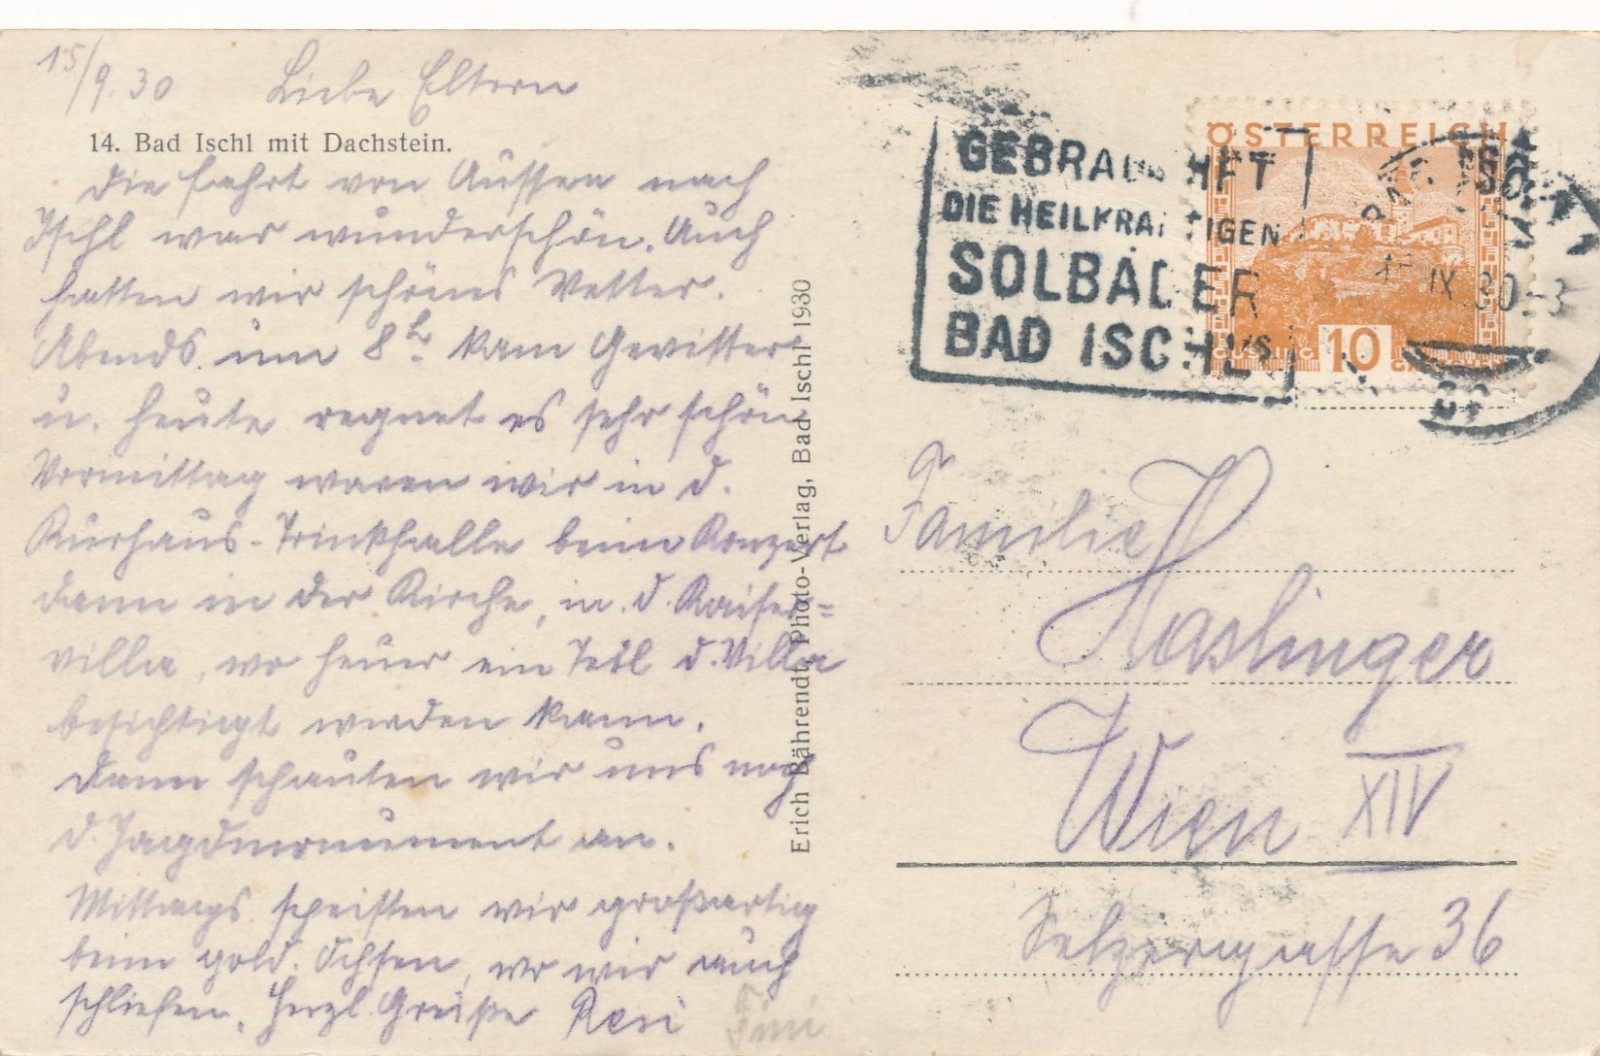 15/9.30 Liebe Eltern
14. Bad Ischl mit Dachstein.
die Fahrt von Aussee nach
Ischl war wunderschön. Auch
hatten wir schönes Wetter.
Abends um 8h kam Gewitter
u. heute regnet es sehr schön
Vormittag waren wir in d.
Kurhaus-Trinkhalle beim Konzert
dann in der Kirche, in d. Kaiser=
villa, wo heuer ein Teil d. Villa
besichtigt werden kann.
Dann schauten wir uns noch
d. Jagdmonument an.
Mittags speisten wir großartig
beim gold. Ochsen, wo wir auch
schliefen. Herzl. Grüße Resi
Erich Bährendt, Photo-Verlag, Bad Ischl 1930
GEBRAUCHT
DIE HEILKRÄFTIGEN
SOLBÄDER
BAD ISCHL'S
ÖSTERREICH
GÜSSING 10 GROSCHEN
IX 30-8
Familie
Haslinger
Wien XIV
Selzergasse 36